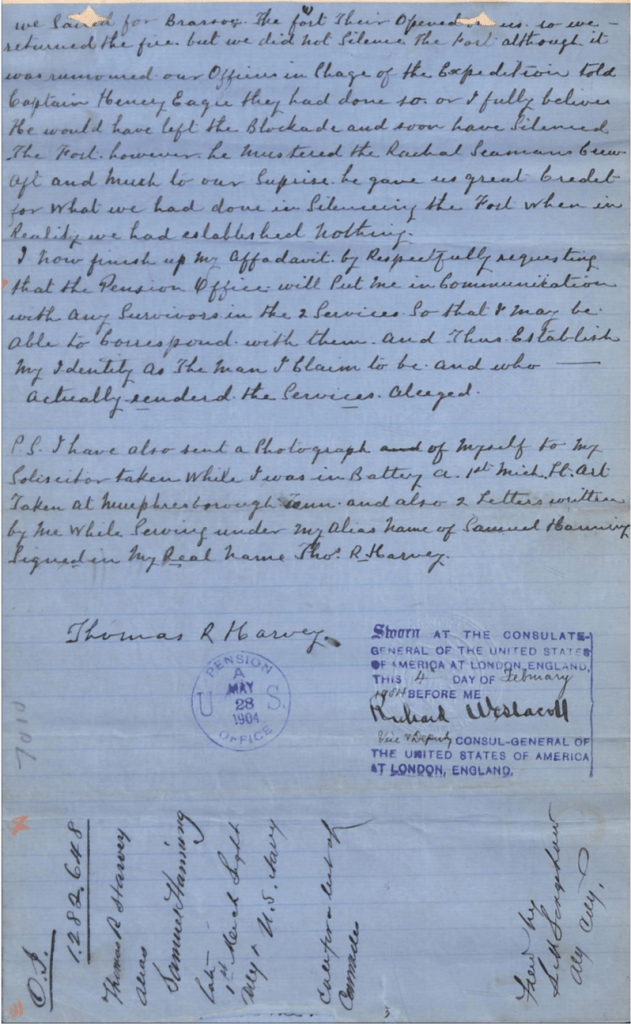 we Sailed for Brassos. The fort Their Opened on us. so we
returned the fire. but we did not Silence The Fort although it
was rumoured our Officers in Chage of the Expedition told
Captain Heney Eagle they had done so. or I fully believe
He would have left the Blockade and soon have Silenced
The Fort. however he Mustered the Seamans Crew
Aft and Much to our Suprise. he gave us great Credit
for what we had done in Silenceing the Fort when in
Reality we had established Nothing.
I now finish up My Affadavit by Respectfully requesting
that the Pension Office will Put Me in Communikation
with any Survivors in the 2 Services. So that I may be
Able to Correspond with them. And Thus Establish
My Identity As The Man I Claim to be. and who —
actually renderd the Services. Aleeged.
P.S. I have also sent a Photograph and of Myself to My
Solicitor taken While I was in Battery A. 1st Mich. Lt. Art
Taken at Murphresborough Tenn. and also 2 Letters written
by Me While Serving under My Alias Name of Samuel Hanning
Signed in My Real Name Thos. R. Harvey.
Thomas R Harvey
PENSION
A
MAY
U 28 S.
1904
OFFICE
Sworn AT THE CONSULATE-
GENERAL OF THE UNITED STATES
OF AMERICA AT LONDON, ENGLAND,
THIS 4th DAY OF February
1904 BEFORE ME
Richard Westacott
Vice & Deputy CONSUL-GENERAL OF
THE UNITED STATES OF AMERICA
AT LONDON, ENGLAND.
7010
O.I.
1.282.648
Thomas R Harvey
alias
Samuel Hanning
Late
1st Mich Light
Aty & U.S. Navy
Calls for a list of
Comrades
Filed by
Aty City.
3